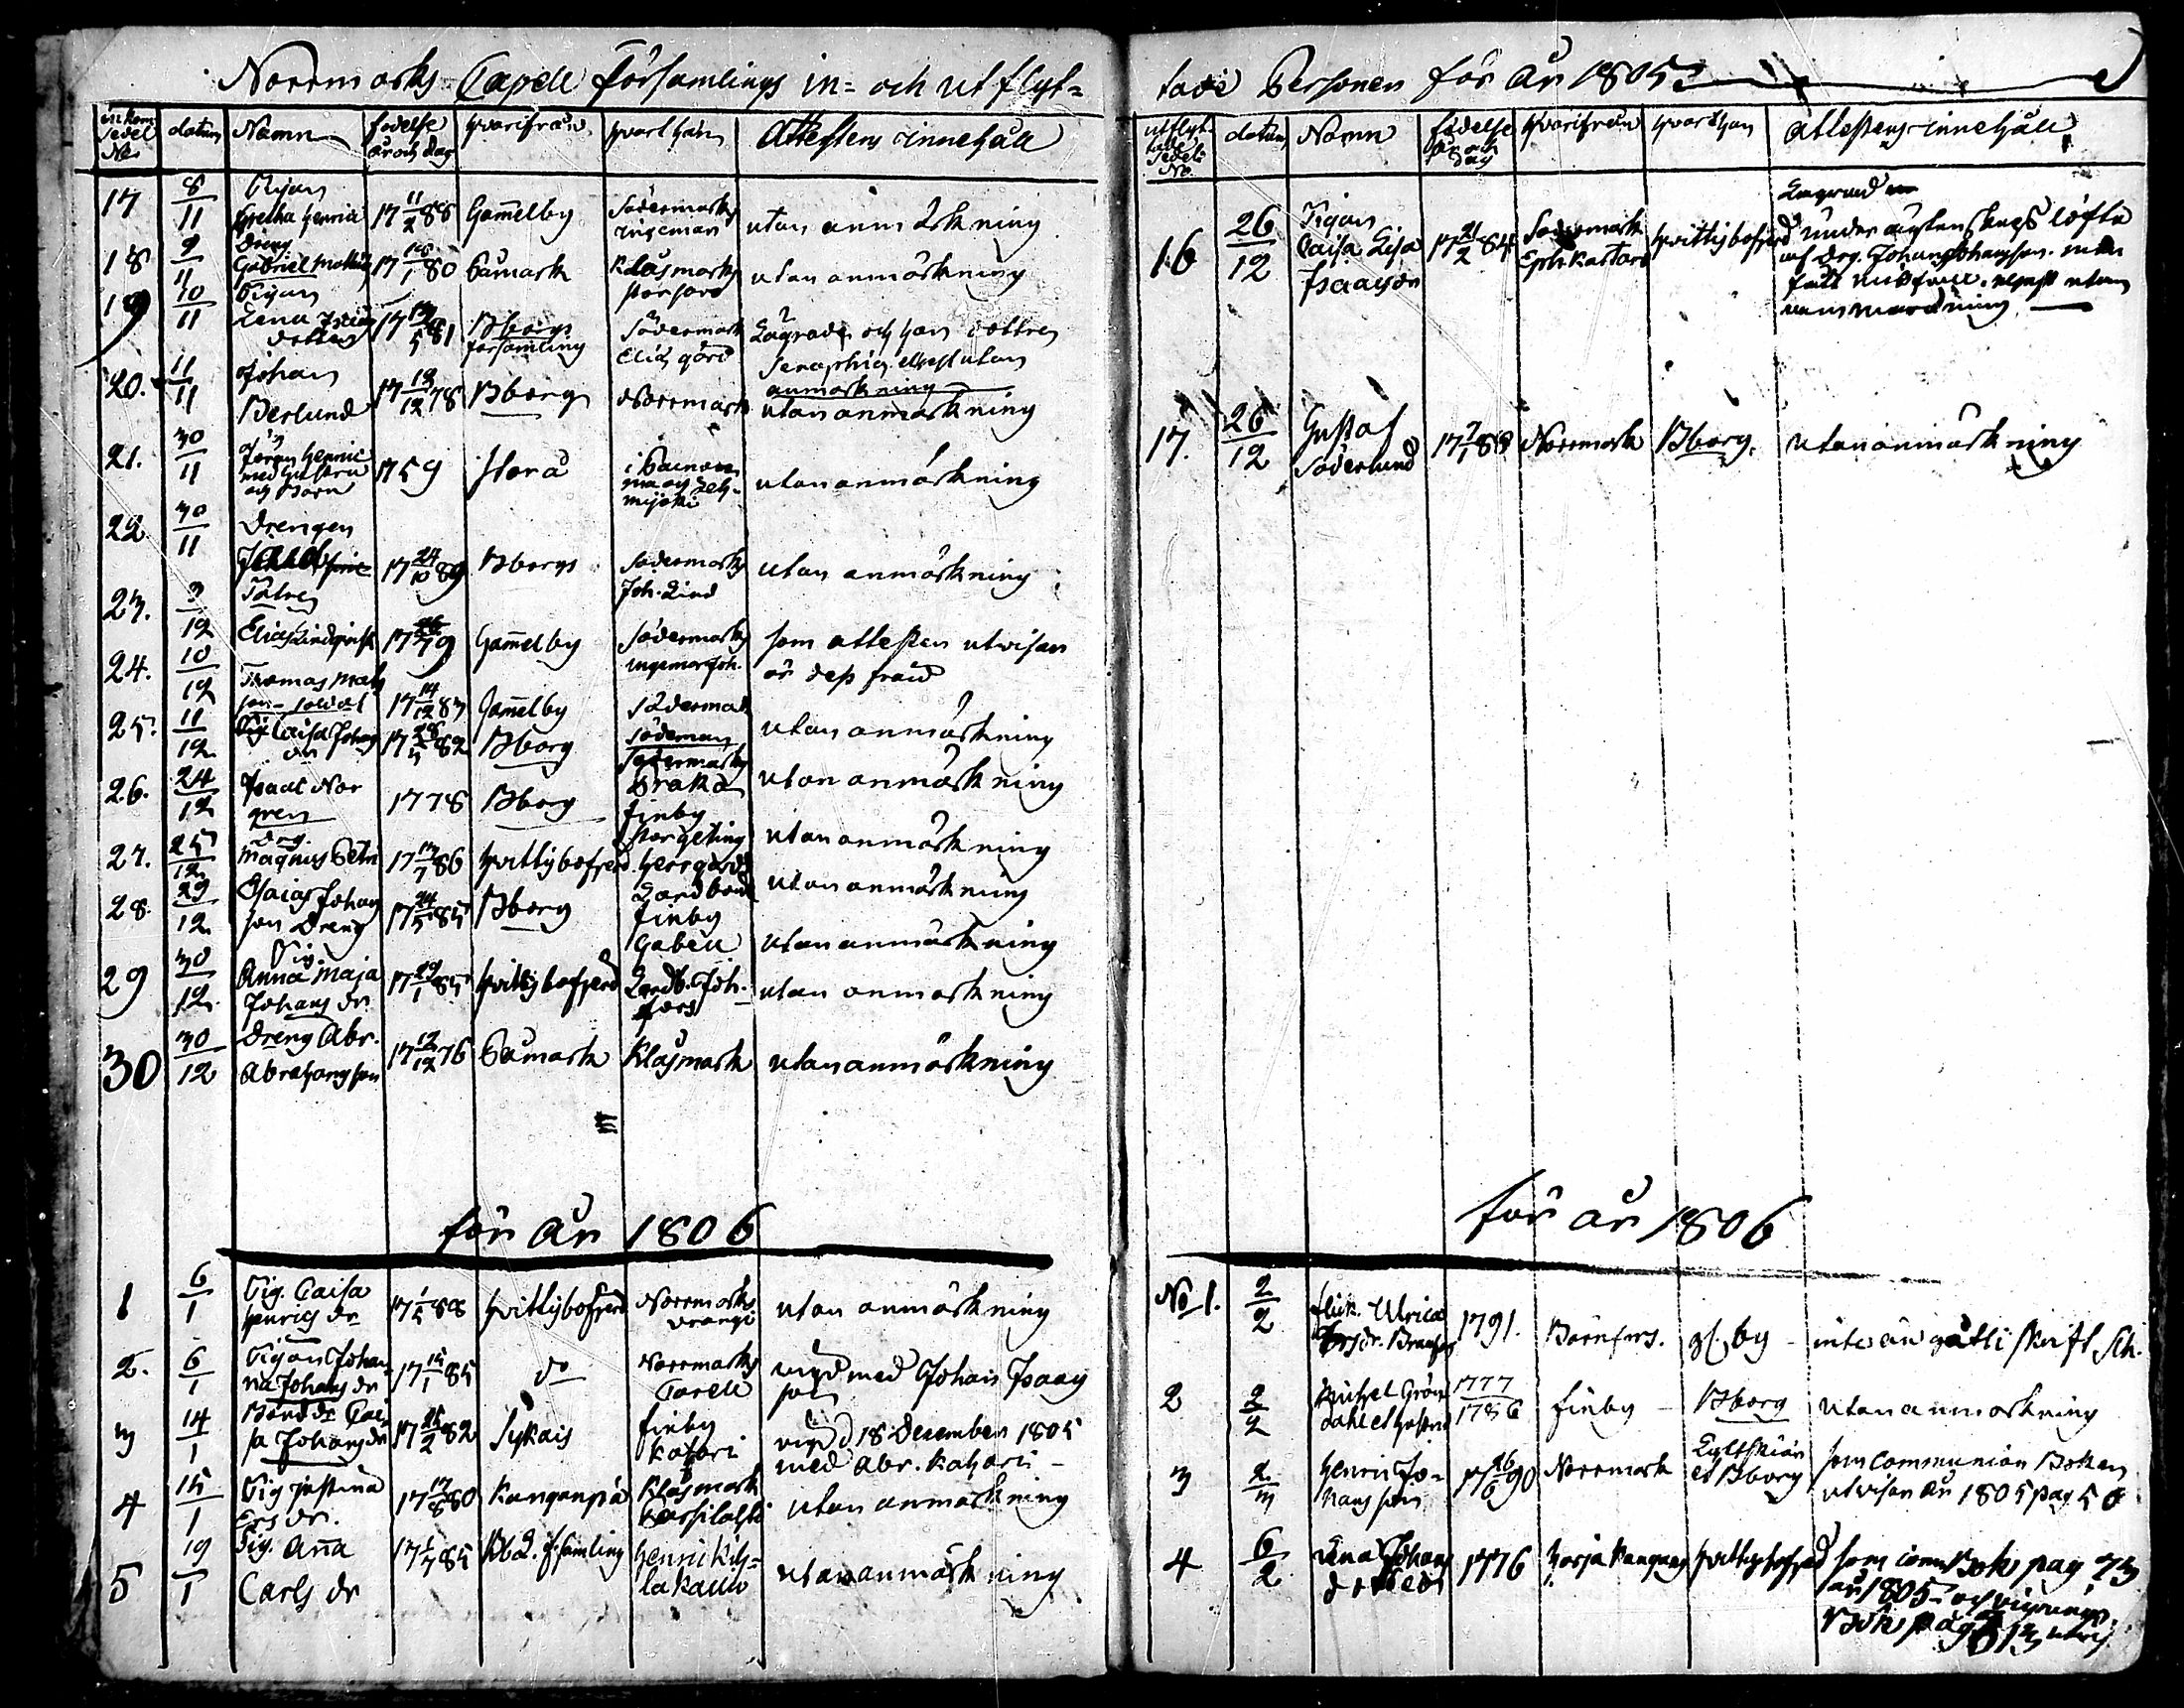 Norrmarks Capell församlings in= och utflyt=
inkom
Sedel
No
datum
Namn
födelse
år och dag
hvarifrån
hvart han
Attestens innehåll
17 8/11 Pigan
Gretha Henrici 17 11/2 88 Gam̄elby Södermarks
Ingeman utan anmärkning
18 9/11 Dräng
Gabriel Matts 17 18/1 80 Påmark Klåsmarks
Storsard utan anmärkning
19 10/11 Pigan
Lena
dotter 17 19/5 81 Bborgs
församling Södermark
Elias gård Lagvade och han dottren
Seraphia, elliest utan
anmärkning
20. 11/11 Johan
Berlund 17 19/12 78 Bborg Norrmark utan anmärkning
21. 30/11 Jöran Henric
med hustru
och Barn 1759 Storå utan anmärkning
22 30/11 Drengen
17 24/10 89 Bborgs Södermarks
Joh. Lind utan anmärkning
23. 3/12 Elias Lindqvist 1779 Gam̄elby Södermarks
Ingemar Joh. som attesten utvisar
är dess fräid
24. 10/12 Thomas Mats
son - soldat 17 14/12 83 Gam̄elby Södermark
Södeman utan anmärkning
25. 11/12 Pig. Caisa Johans
dr 17 28/5 82 Bborg Södermarks
Draka utan anmärkning
26. 24/12 Isaac Nor
gren 1778 Bborg Finby
Storgeting utan anmärkning
27. 25/12 drg.
Magnus Petri 17 13/7 86 Hvittisbofjerd Herrgårds
Landbond utan anmärkning
28. 29/12 Esaias Johan
son Dreng 17 24/5 85 Bborg Finby
Gabell utan anmärkning
29 30/12 Pig.
Anna Maja
Johans dr 17 29/1 85 Hvittisbofjerd Landb. Joh.
fors utan anmärkning
30 30/12 Dreng Abr.
Abrahamsson 17 12/12 76 Påmark Klåsmark utan anmärkning
för år 1806
1 6/1 Pig. Caisa
Henrics dr 17 1/5 88 Hvittisbofjerd Norrmarks
Drangi utan anmärkning
2. 6/1 Pigan Johan
na Johans dr 17 15/1 85 do Norrmarks
Capell vigd med Johan Isaacs
son
3 14/1 Bond dr Cai
sa Johans dr 17 25/2 82 Sykais Finby
Katari vigd d 18 December 1805
med Abr. Katari -
4 15/1 Pig Justina
Ers dr. 17 17/8 80 Kanganpä Klåsmark
Karsilahti utan anmärkning
5 19/1 Pig. Anna
Carls dr 17 1/7 85 Henric Kih=
lakallio utan anmärkning
tade Personer för år 1805
utflyt-
tade
Sedel
No
datum
Namn
födelse
år och
dag
hvarifrån
hvart han
Attestens innehåll
16 26/12 Pigan
Caisa Lisa
Isaacs dr 17 21/2 84 Södermark
Eph. Kastari Hvittisbofjerd Lagvad
under ägtenskaps löfte
af drg. Johan Johansson
elliest utan
anmärkning
17. 26/12 Gustaf
Söderlund 17 7/1 88 Norrmark Bborg. utan anmärkning
för år 1806
No 1. 2/2 flick. Ulrica 1791. Björnfors. gl. by - inte än gått i skrift sk.
2 2/2 Michel Grön
dahl et hustru 1777
1786 Finby - Bborg utan anmärkning
3 2/3 Henric Jo=
hans son 17 26/6 90 Norrmark
et Bborg som Communion Boken
utvisar år 1805 pag 50
4 6/2 Lena Johans
dotter 1776 Torja Kangas Hvittisbofjerd som comm Bok pag 73
år 1805 och
Bok pag 313 utvis